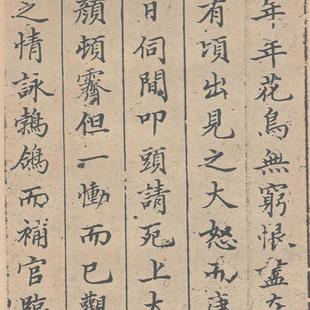 年年花鳥無窮恨盡在
有頃出見之大怒而
日伺間叩頭請死上大
顏頓霽但一慟而已觀
之情詠鶺鴒而補官臨